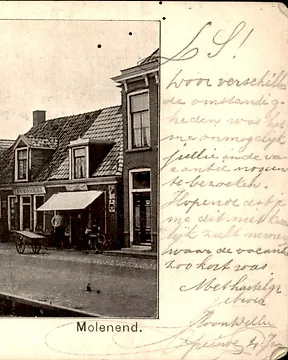 L S!
Door verschillen
de omstandig-
heden was het
me onmogelijk
jullie in de va-
cantie nog een
te bezoeken.
Hopende dat je
me dit niet kwa
lijk zult nemen
waar de vacantie
zoo kort was.
Met hartelijke
Molenend.